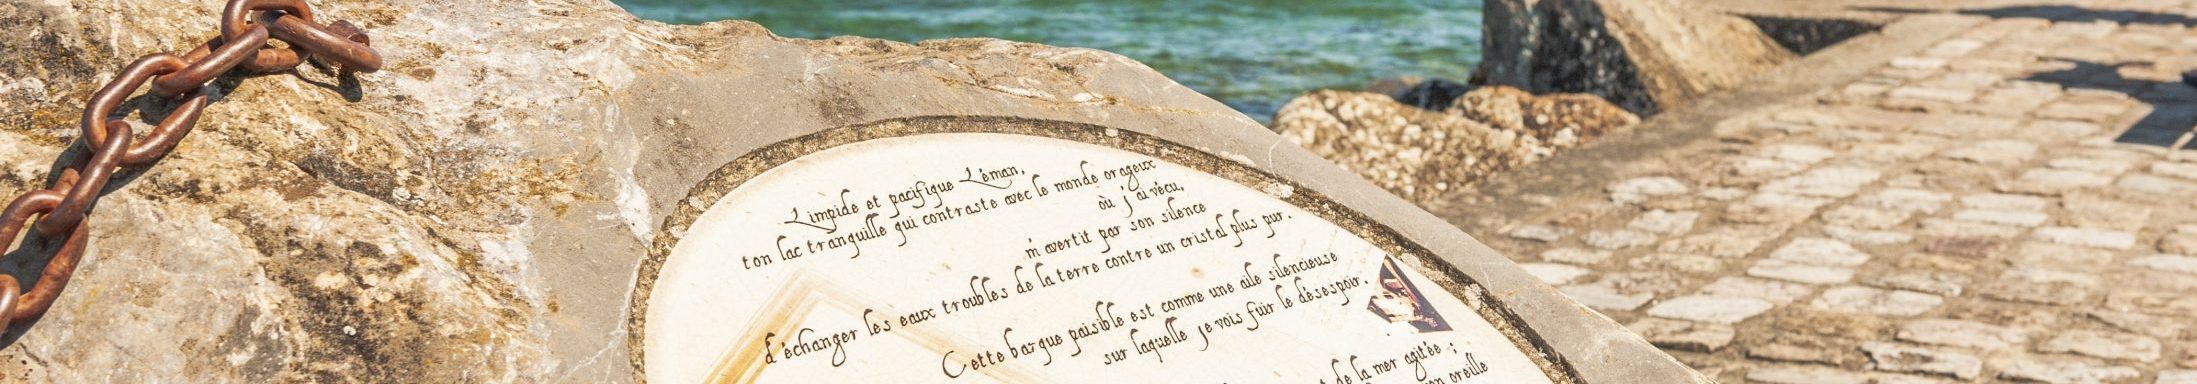 Limpide et pacifique Léman,
ton lac tranquille qui contraste avec le monde orageux
où j'ai vécu,
m'avertit par son silence
d'échanger les eaux troubles de la terre contre un cristal plus pur.
Cette barque paisible est comme une aile silencieuse
sur laquelle je vois fuir le désespoir.
de la mer agitée ;
oreille